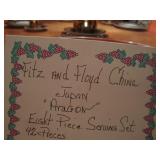 Fitz and Floyd China
Japan
"Aragon"
Eight Piece Serving Set
42 Pieces